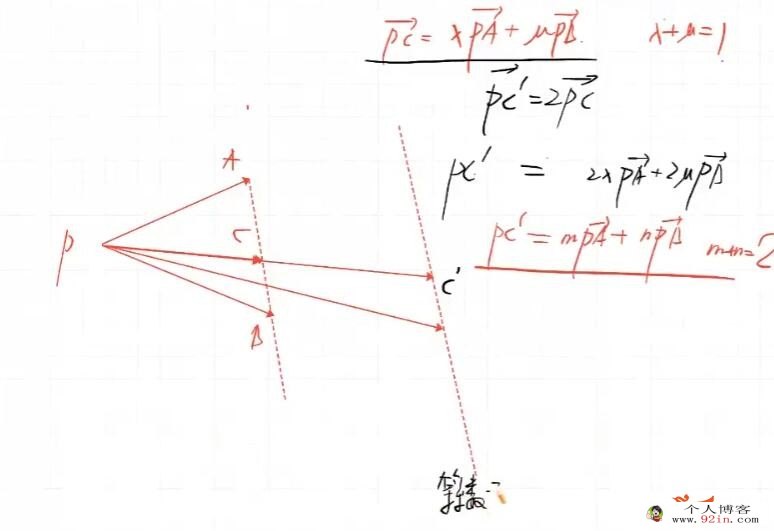 →PC = λ→PA + μ→PB  λ+μ=1
→PC' = 2→PC
PC' = 2λ→PA + 2μ→PB
PC' = m→PA + n→PB  m+n=2
A
P
C
C'
B
个人博客
www.92in.com